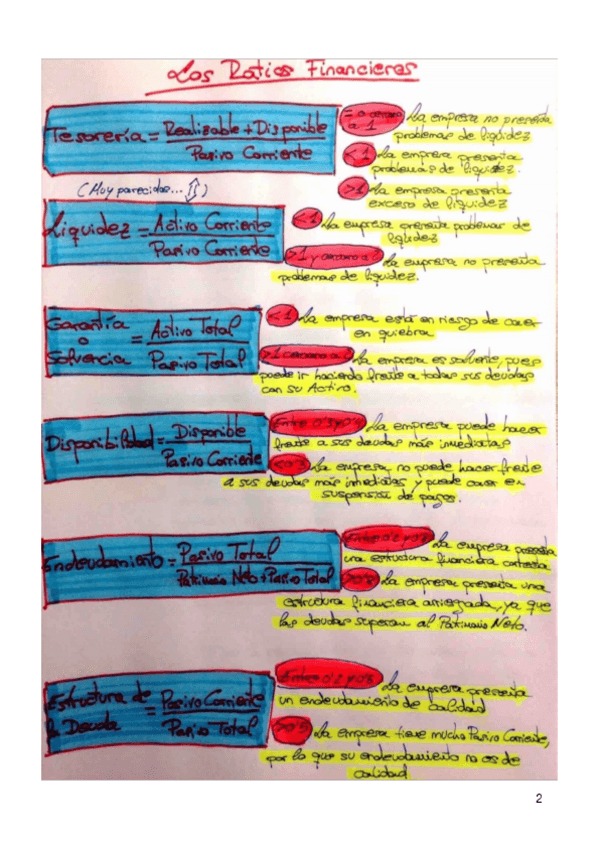 Los Ratios Financieros
Tesorería = Realizable + Disponible
Pasivo Corriente
= o cercano a 1 La empresa no presenta
problemas de liquidez
<1 La empresa presenta
problemas de liquidez.
>1 La empresa presenta
exceso de liquidez
(Muy parecidos... )
Liquidez = Activo Corriente
Pasivo Corriente
<1 La empresa presenta problemas de
liquidez
>1 y cercano a La empresa no presenta
problemas de liquidez.
Garantía
o
Solvencia = Activo Total
Pasivo Total
<1 La empresa está en riesgo de caer
en quiebra
>1 cercano a La empresa es solvente, pues
puede ir haciendo frente a todas sus deudas
con su Activo.
Disponibilidad = Disponible
Pasivo Corriente
Entre 0'3 y 0'4 La empresa puede hacer
frente a sus deudas más inmediatas
<0'3 La empresa no puede hacer frente
a sus deudas más inmediatas y puede caer en
suspensión de pagos.
Endeudamiento = Pasivo Total
Patrimonio Neto + Pasivo Total
Entre 0'2 y 0'8 La empresa presenta
una estructura financiera correcta
>0'8 La empresa presenta una
estructura financiera arriesgada, ya que
las deudas superan al Patrimonio Neto.
Estructura de
la Deuda = Pasivo Corriente
Pasivo Total
Entre 0'2 y 0'5 La empresa presenta
un endeudamiento de calidad
>0'5 La empresa tiene mucho Pasivo Corriente,
por lo que su endeudamiento no es de
calidad
2